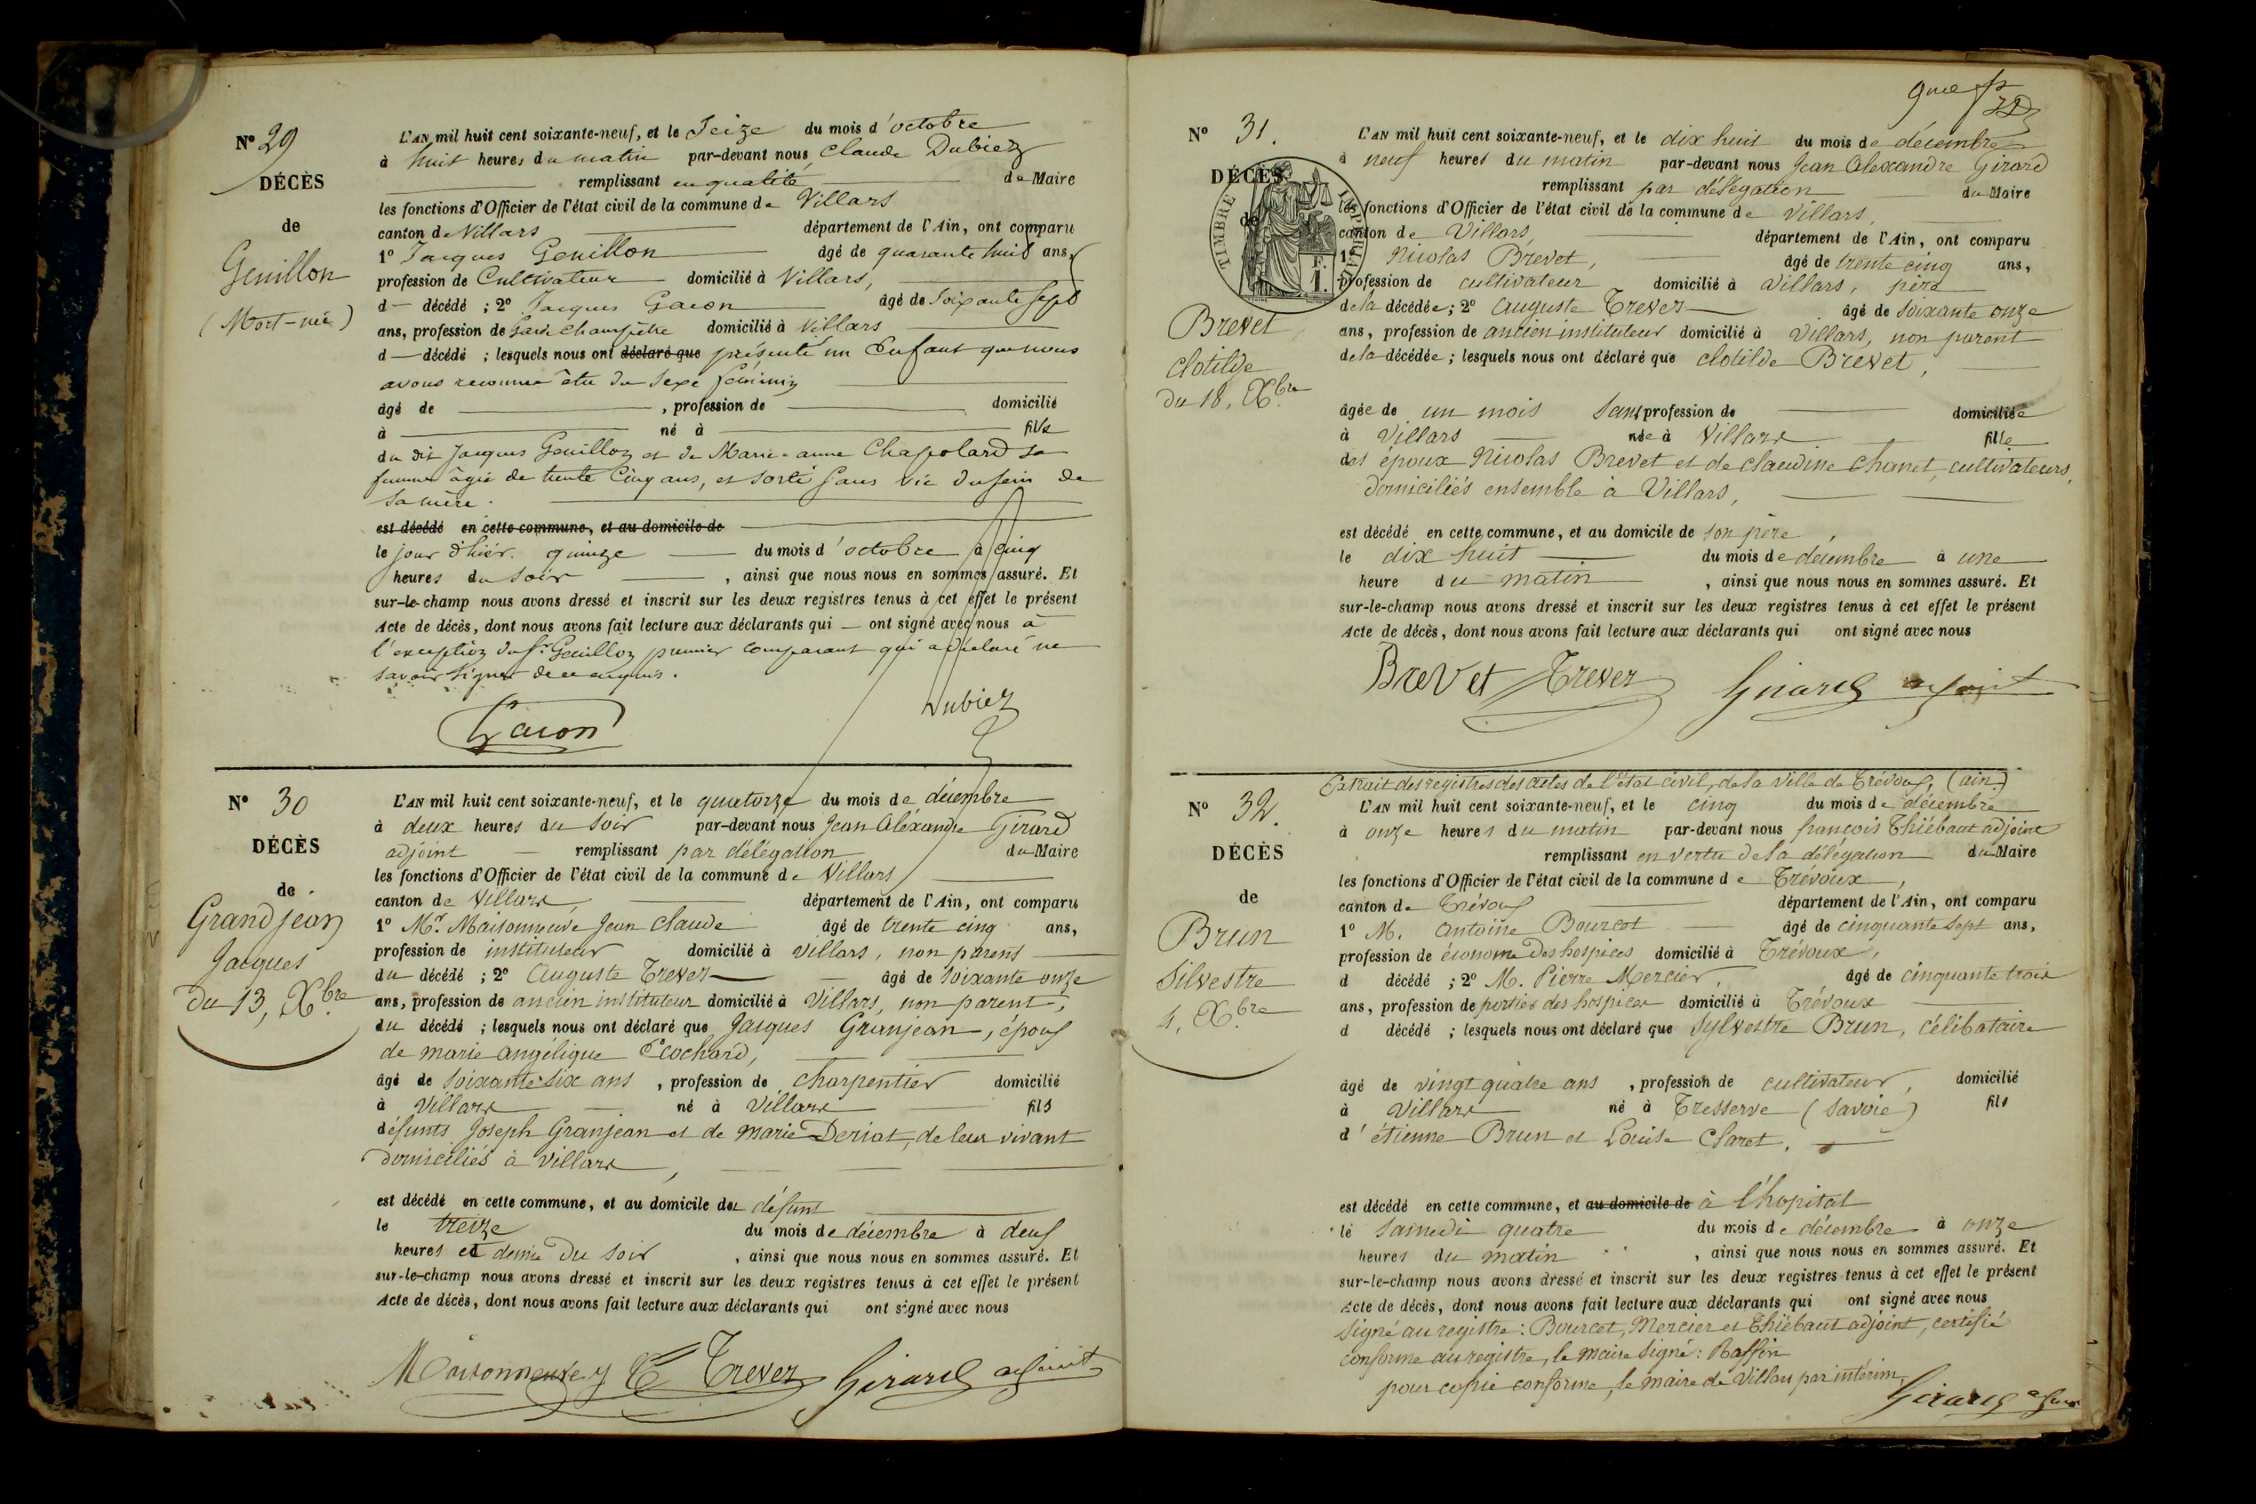 Nº 29
DÉCÈS
de
Genillon
(Mort-née)
L'AN mil huit cent soixante-neuf, et le Seize du mois d'octobre
à huit heures du matin par-devant nous Claude Dubiez
remplissant en qualité de Maire
les fonctions d'Officier de l'état civil de la commune de Villars
canton de Villars département de l'Ain, ont comparu
1º Jacques Genillon âgé de quarante huit ans,
profession de Cultivateur domicilié à Villars,
d décédé ; 2º Jacques Gacon âgé de Soixante Sept
ans, profession de Garde Champêtre domicilié à Villars
d décédé ; lesquels nous ont déclaré que présenté un Enfant que nous
avons reconnu être du Sexe féminin
âgé de , profession de domicilié
à né à fille
du dit Jacques Genillon et de Marie-anne Chapolard sa
femme âgée de trente Cinq ans, et sorti sans vie du sein de
sa mère.
est décédé en cette commune, et au domicile de
le jour d'hier quinze du mois d'octobre à cinq
heures du soir , ainsi que nous nous en sommes assuré. Et
sur-le-champ nous avons dressé et inscrit sur les deux registres tenus à cet effet le présent
Acte de décès, dont nous avons fait lecture aux déclarants qui ont signé avec nous à
l'exception du Sr Genillon premier comparant qui a déclaré ne
savoir signer de ce enquis.
Gacon
Dubiez
Nº 30
DÉCÈS
de
Grandjean
Jacques
du 13, Xbre
L'AN mil huit cent soixante-neuf, et le quatorze du mois de décembre
à deux heures du soir par-devant nous Jean Aléxandre Girard
adjoint remplissant par délégation du Maire
les fonctions d'Officier de l'état civil de la commune de Villars
canton de Villars département de l'Ain, ont comparu
1º Mr. Maisonneuve Jean Claude âgé de trente cinq ans,
profession de instituteur domicilié à Villars, non parent
du décédé ; 2º Auguste Trevez âgé de soixante onze
ans, profession de ancien instituteur domicilié à Villars, non parent,
du décédé ; lesquels nous ont déclaré que Jacques Granjean, époux
de marie angélique Ecochard,
âgé de soixante six ans , profession de charpentier domicilié
à Villars né à Villars fils
défunts Joseph Granjean et de marie Deriat, de leur vivant
domiciliés à Villars,
est décédé en cette commune, et au domicile du défunt
le treize du mois de décembre à deux
heures et demie du soir , ainsi que nous nous en sommes assuré. Et
sur-le-champ nous avons dressé et inscrit sur les deux registres tenus à cet effet le présent
Acte de décès, dont nous avons fait lecture aux déclarants qui ont signé avec nous
Maisonneuve Trevez Girard adjoint
9me
Nº 31.
DÉCÈS
de
TIMBRE IMPÉRIAL
F.
1.
Brevet
Clotilde
du 18, Xbre
L'AN mil huit cent soixante-neuf, et le dix huit du mois de décembre
à neuf heures du matin par-devant nous Jean Alexandre Girard
remplissant par délégation du Maire
les fonctions d'Officier de l'état civil de la commune de Villars,
canton de Villars département de l'Ain, ont comparu
1º Nicolas Brevet, âgé de trente cinq ans,
profession de cultivateur domicilié à Villars, père
de la décédée ; 2º Auguste Trevez âgé de soixante onze
ans, profession de ancien instituteur domicilié à Villars, non parent
de la décédée ; lesquels nous ont déclaré que clotilde Brevet,
âgée de un mois sans profession de domiciliée
à Villars née à Villars fille
des époux Nicolas Brevet et de claudine Chanet, cultivateurs,
domiciliés ensemble à Villars,
est décédé en cette commune, et au domicile de son père,
le dix huit du mois de décembre à une
heure du matin , ainsi que nous nous en sommes assuré. Et
sur-le-champ nous avons dressé et inscrit sur les deux registres tenus à cet effet le présent
Acte de décès, dont nous avons fait lecture aux déclarants qui ont signé avec nous
Brevet Trevez Girard adjoint
Extrait des registres des actes de l'état civil, de la ville de Trévoux, (ain.)
Nº 32.
DÉCÈS
de
Brun
Silvestre
4, Xbre
L'AN mil huit cent soixante-neuf, et le cinq du mois de décembre
à onze heures du matin par-devant nous françois Thiébaut adjoint
remplissant en vertu de la délégation du Maire
les fonctions d'Officier de l'état civil de la commune de Trévoux,
canton de Trévoux département de l'Ain, ont comparu
1º M. Antoine Bourcet âgé de cinquante sept ans,
profession de économe des hospices domicilié à Trévoux,
d décédé ; 2º M. Pierre Mercier, âgé de cinquante trois
ans, profession de portier des hospices domicilié à Trévoux
d décédé ; lesquels nous ont déclaré que Sylvestre Brun, célibataire
âgé de vingt quatre ans , profession de cultivateur, domicilié
à Villars né à Tresserve (Savoie) fils
d'étienne Brun et Louise Claret.
est décédé en cette commune, et au domicile de à l'hopital
le samedi quatre du mois de décembre à onze
heures du matin , ainsi que nous nous en sommes assuré. Et
sur-le-champ nous avons dressé et inscrit sur les deux registres tenus à cet effet le présent
Acte de décès, dont nous avons fait lecture aux déclarants qui ont signé avec nous
Signé au registre : Bourcet, Mercier et Thiébaut adjoint, certifié
conforme au registre, le maire signé : Raffin
pour copie conforme, le maire de Villars par intérim,
Girard adjoint